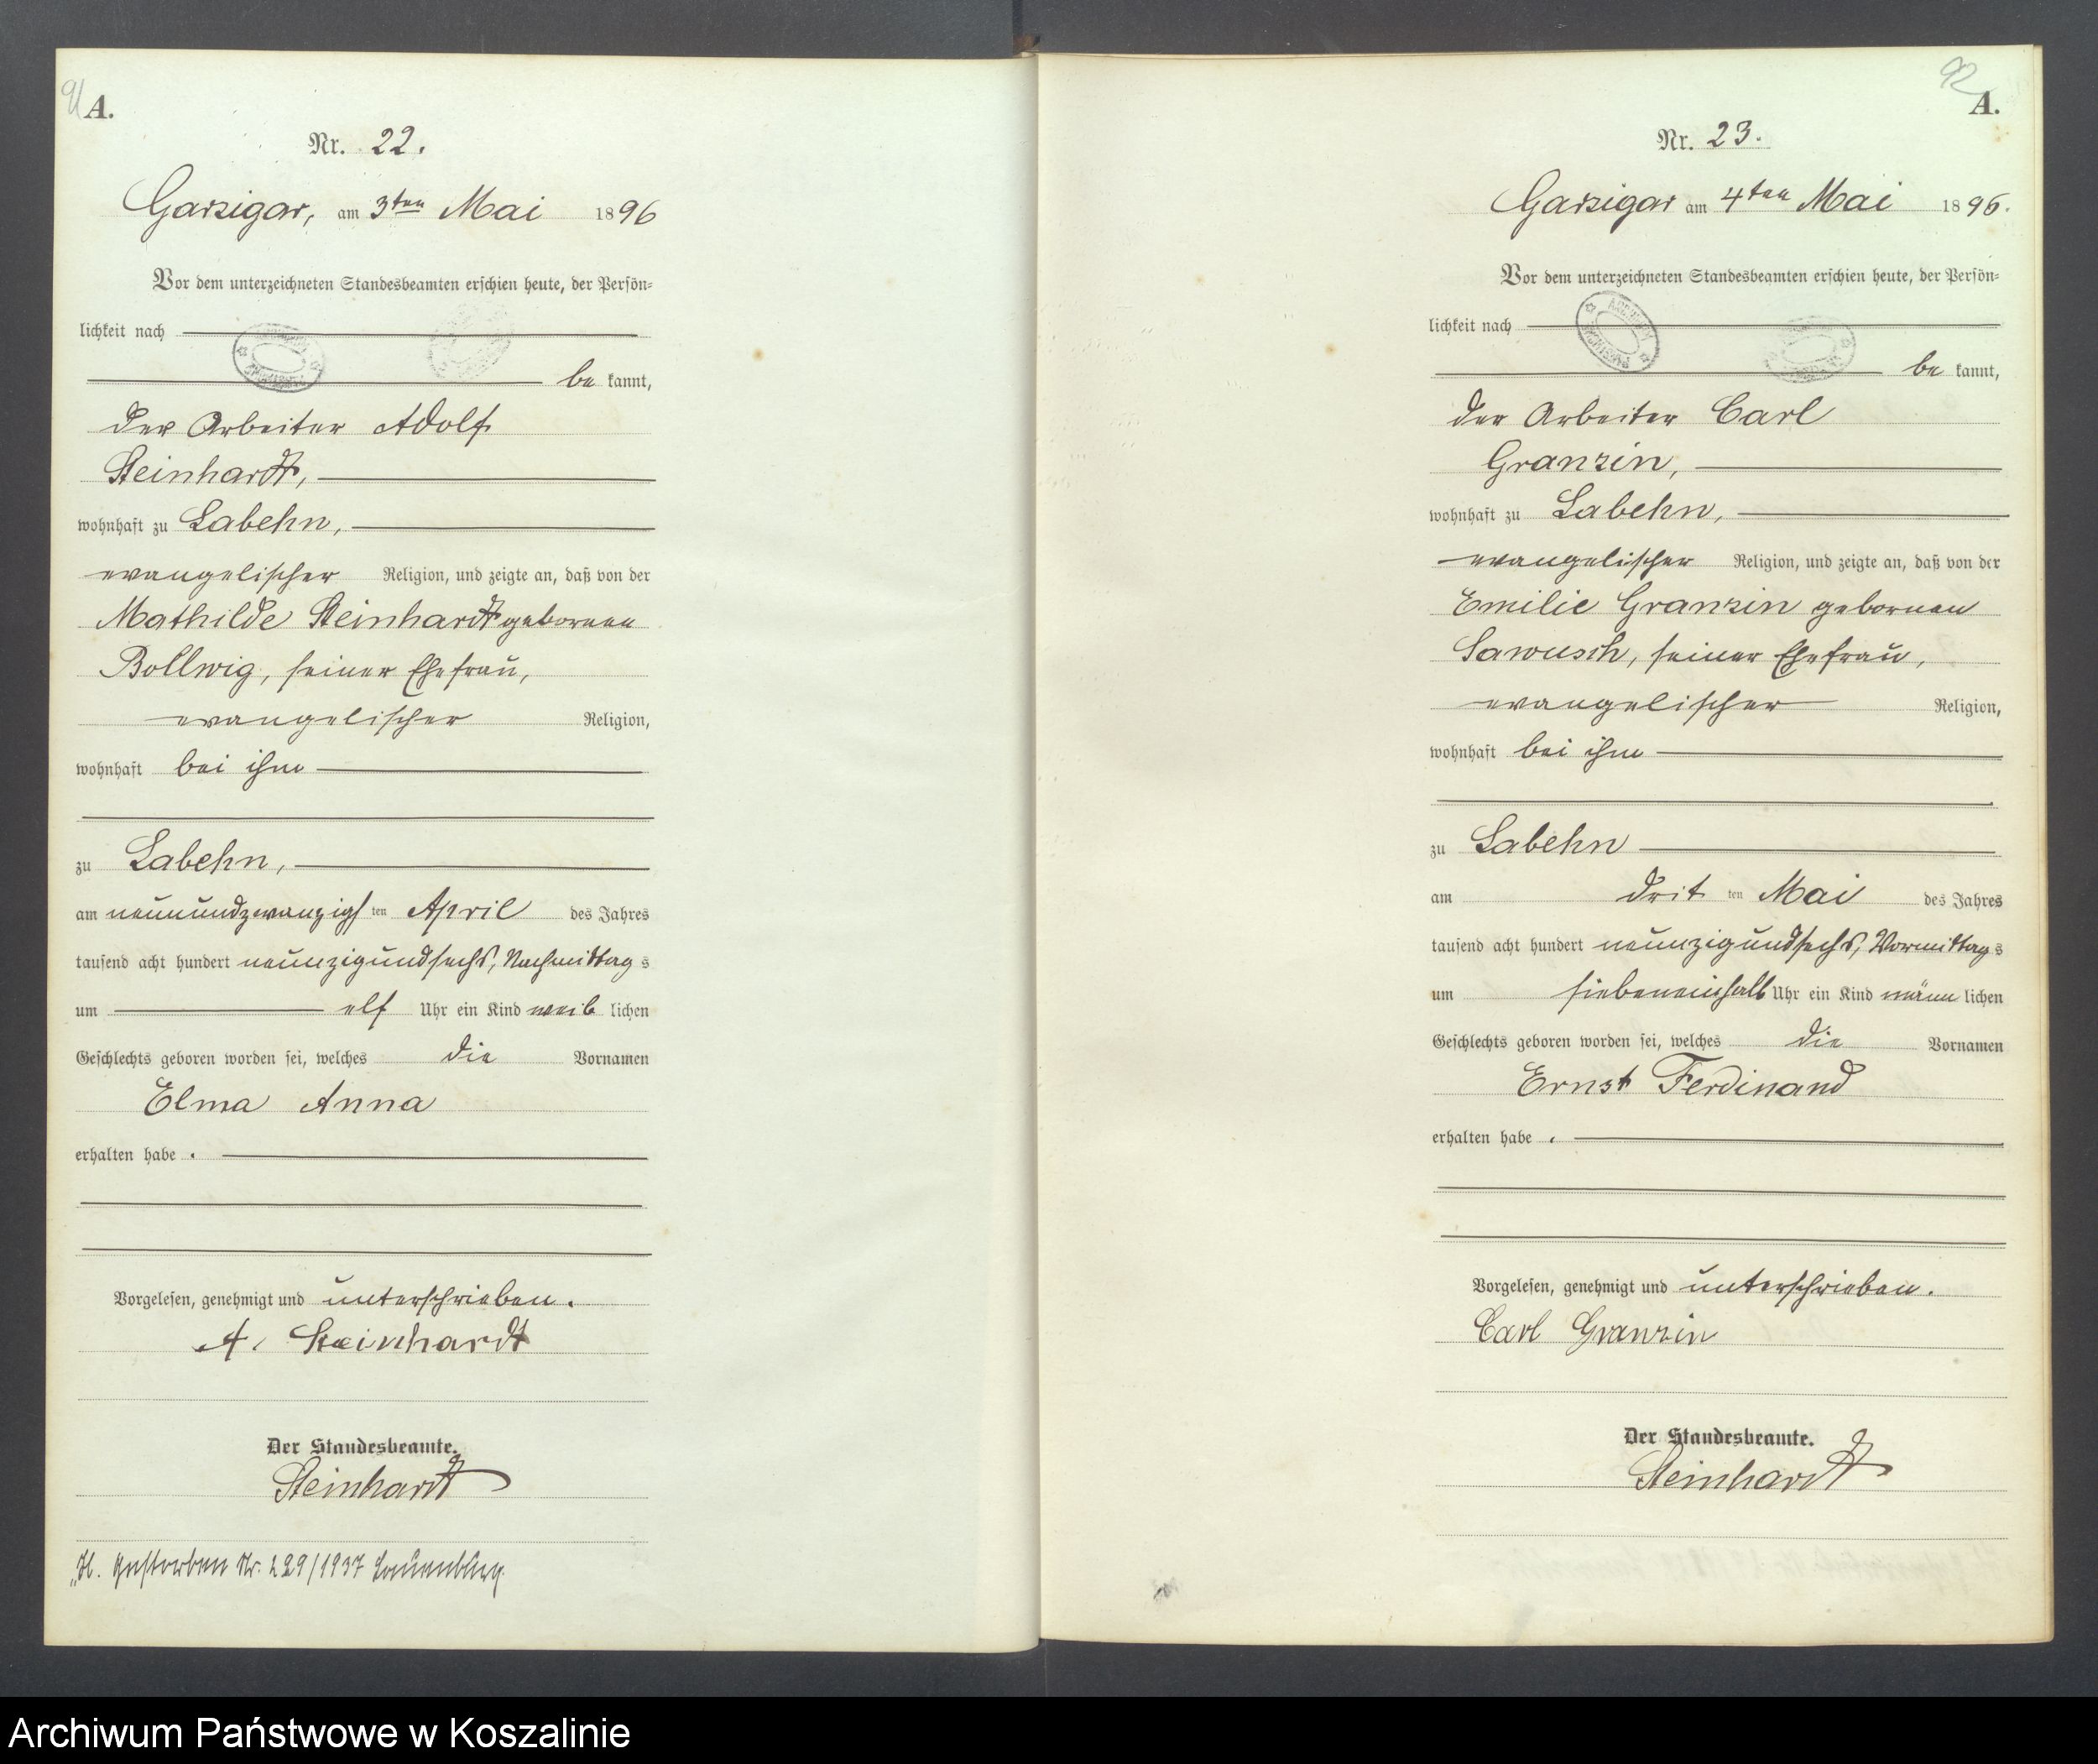 91
A.
Nr. 22.
Garzigar, am 3ten Mai 1896
Vor dem unterzeichneten Standesbeamten erschien heute, der Persön-
lichkeit nach
be kannt,
der Arbeiter Adolf
Steinhardt,
wohnhaft zu Labehn,
evangelischer Religion, und zeigte an, daß von der
Mathilde Steinhardt gebornen
Bollwig, seiner Ehefrau,
evangelischer Religion,
wohnhaft bei ihm
zu Labehn,
am neunundzwanzigsten April des Jahres
tausend acht hundert neunzigundsechs, Nachmittags
um elf Uhr ein Kind weib lichen
Geschlechts geboren worden sei, welches die Vornamen
Elma Anna
erhalten habe.
Vorgelesen, genehmigt und unterschrieben.
A. Steinhardt
Der Standesbeamte.
Steinhardt
Gestorben Nr. 229/1937 Lauenburg.
92
A.
Nr. 23.
Garzigar am 4ten Mai 1896.
Vor dem unterzeichneten Standesbeamten erschien heute, der Persön-
lichkeit nach
be kannt,
der Arbeiter Carl
Granzin,
wohnhaft zu Labehn,
evangelischer Religion, und zeigte an, daß von der
Emilie Granzin gebornen
Sawusch, seiner Ehefrau,
evangelischer Religion,
wohnhaft bei ihm
zu Labehn
am drit ten Mai des Jahres
tausend acht hundert neunzigundsechs, Vormittags
um siebeneinhalb Uhr ein Kind männ lichen
Geschlechts geboren worden sei, welches die Vornamen
Ernst Ferdinand
erhalten habe.
Vorgelesen, genehmigt und unterschrieben.
Carl Granzin
Der Standesbeamte.
Steinhardt
Archiwum Państwowe w Koszalinie